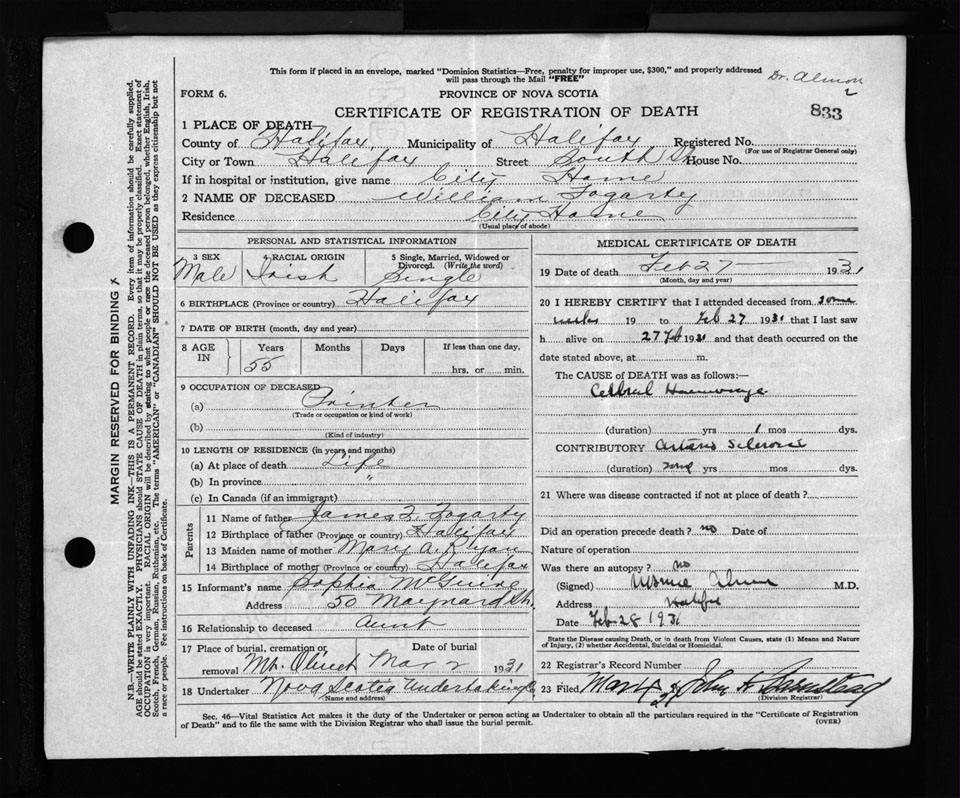 This form if placed in an envelope, marked "Dominion Statistics—Free, penalty for improper use, $300," and properly addressed
will pass through the Mail "FREE"
Dr. Almon
2
FORM 6.
PROVINCE OF NOVA SCOTIA
CERTIFICATE OF REGISTRATION OF DEATH
833
1 PLACE OF DEATH—
County of Halifax, Municipality of Halifax Registered No.
(For use of Registrar General only)
City or Town Halifax Street South St. House No.
If in hospital or institution, give name City Home
2 NAME OF DECEASED William Fogarty
Residence City Home
(Usual place of abode)
PERSONAL AND STATISTICAL INFORMATION
3 SEX 4 RACIAL ORIGIN 5 Single, Married, Widowed or
Divorced. (Write the word)
Male Irish Single
6 BIRTHPLACE (Province or country) Halifax
7 DATE OF BIRTH (month, day and year)
8 AGE IN Years Months Days If less than one day,
55 hrs. or min.
9 OCCUPATION OF DECEASED
(a) Printer
(Trade or occupation or kind of work)
(b)
(Kind of industry)
10 LENGTH OF RESIDENCE (in years and months)
(a) At place of death Life
(b) In province "
(c) In Canada (if an immigrant)
Parents
11 Name of father James F. Fogarty
12 Birthplace of father (Province or country) Halifax
13 Maiden name of mother Mary A. Ryan
14 Birthplace of mother (Province or country) Halifax
15 Informant's name Sophia McGuire
Address 50 Maynard St.
16 Relationship to deceased Aunt
17 Place of burial, cremation or removal Date of burial
Mt. Olivet Mar 2 1931
18 Undertaker Nova Scotia Undertaking Co
(Name and address)
MEDICAL CERTIFICATE OF DEATH
19 Date of death Feb 27 — 1931
(Month, day and year)
20 I HEREBY CERTIFY that I attended deceased from some
weeks 19 to Feb 27 1931 that I last saw
h alive on 27 Feb 1931 and that death occurred on the
date stated above, at m.
The CAUSE of DEATH was as follows:—
Cerebral Haemorrhage
(duration) yrs 1 mos dys.
CONTRIBUTORY Arterio Sclerosis
(duration) some yrs mos dys.
21 Where was disease contracted if not at place of death?
Did an operation precede death? no Date of
Nature of operation
Was there an autopsy? no
(Signed) Almon M.D.
Address Halifax
Date Feb 28 1931
State the Disease causing Death, or in death from Violent Causes, state (1) Means and Nature
of Injury, (2) whether Accidental, Suicidal or Homicidal.
22 Registrar's Record Number
23 Filed John
(Division Registrar)
Sec. 46—Vital Statistics Act makes it the duty of the Undertaker or person acting as Undertaker to obtain all the particulars required in the "Certificate of Registration
of Death" and to file the same with the Division Registrar who shall issue the burial permit.
(OVER)
MARGIN RESERVED FOR BINDING
N.B.—WRITE PLAINLY WITH UNFADING INK—THIS IS A PERMANENT RECORD. Every item of information should be carefully supplied.
AGE should be stated EXACTLY. PHYSICIANS should STATE CAUSE OF DEATH in plain terms, so that it may be properly classified. Exact statement of
OCCUPATION is very important. RACIAL ORIGIN will be described by stating to what people or race the deceased person belonged, whether English, Irish,
Scotch, French, German, Russian, Ruthenian, etc. The terms "AMERICAN" or "CANADIAN" SHOULD NOT BE USED as they express citizenship but not
a race or people. See instructions on back of Certificate.